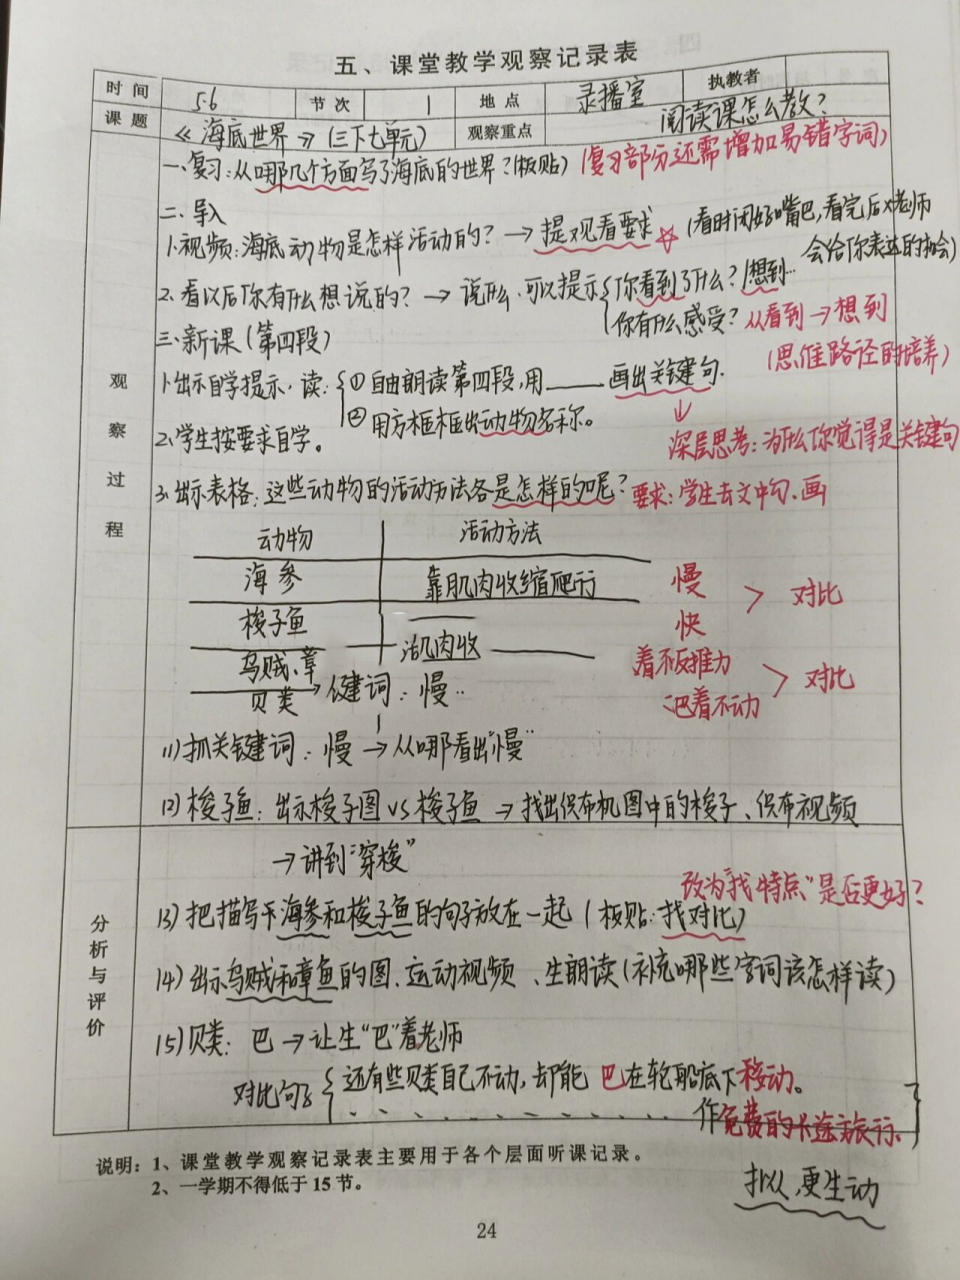 五、课堂教学观察记录表
时间 5.6 节次 1 地点 录播室 执教者
课题 《海底世界》(三下七单元) 观察重点 阅读课怎么教?
一、复习:从哪几个方面写了海底的世界?(板贴) (复习部分还需增加易错字词)
二、导入
1、视频:海底动物是怎样活动的?→提观看要求☆(看时闭好嘴巴,看完后老师
会给你表达的机会)
2、看以后你有什么想说的?→说什么、可以提示 你看到了什么?想到…
你有什么感受?从看到→想到
(思维路径的培养)
三、新课(第四段)
1、出示自学提示、读: ①自由朗读第四段,用____画出关键句.
②用方框框出动物名称。
2、学生按要求自学。
深层思考:为什么你觉得是关键句
3、出示表格:这些动物的活动方法各是怎样的呢?要求:学生去文中勾、画
观察过程
动物 活动方法
海参 靠肌肉收缩爬行 慢 > 对比
梭子鱼 快
乌贼、章 肌肉收 着 推力 > 对比
贝类 关键词:慢.. 巴着不动
(1)抓关键词:慢→从哪看出"慢"
(2)梭子鱼:出示梭子图VS梭子鱼→找出织布机图中的梭子、织布视频
→讲到"穿梭"
改为"找特点"是否更好?
(3)把描写海参和梭子鱼的句子放在一起(板贴:找对比)
(4)出示乌贼和章鱼的图、运动视频、生朗读(补充哪些字词该怎样读)
分析与评价
(5)贝类:巴→让生"巴"着老师
对比句子 还有些贝类自己不动,却能巴在轮船底下移动。
作免费的长途旅行.
拟人,更生动
说明:1、课堂教学观察记录表主要用于各个层面听课记录。
2、一学期不得低于15节。
24